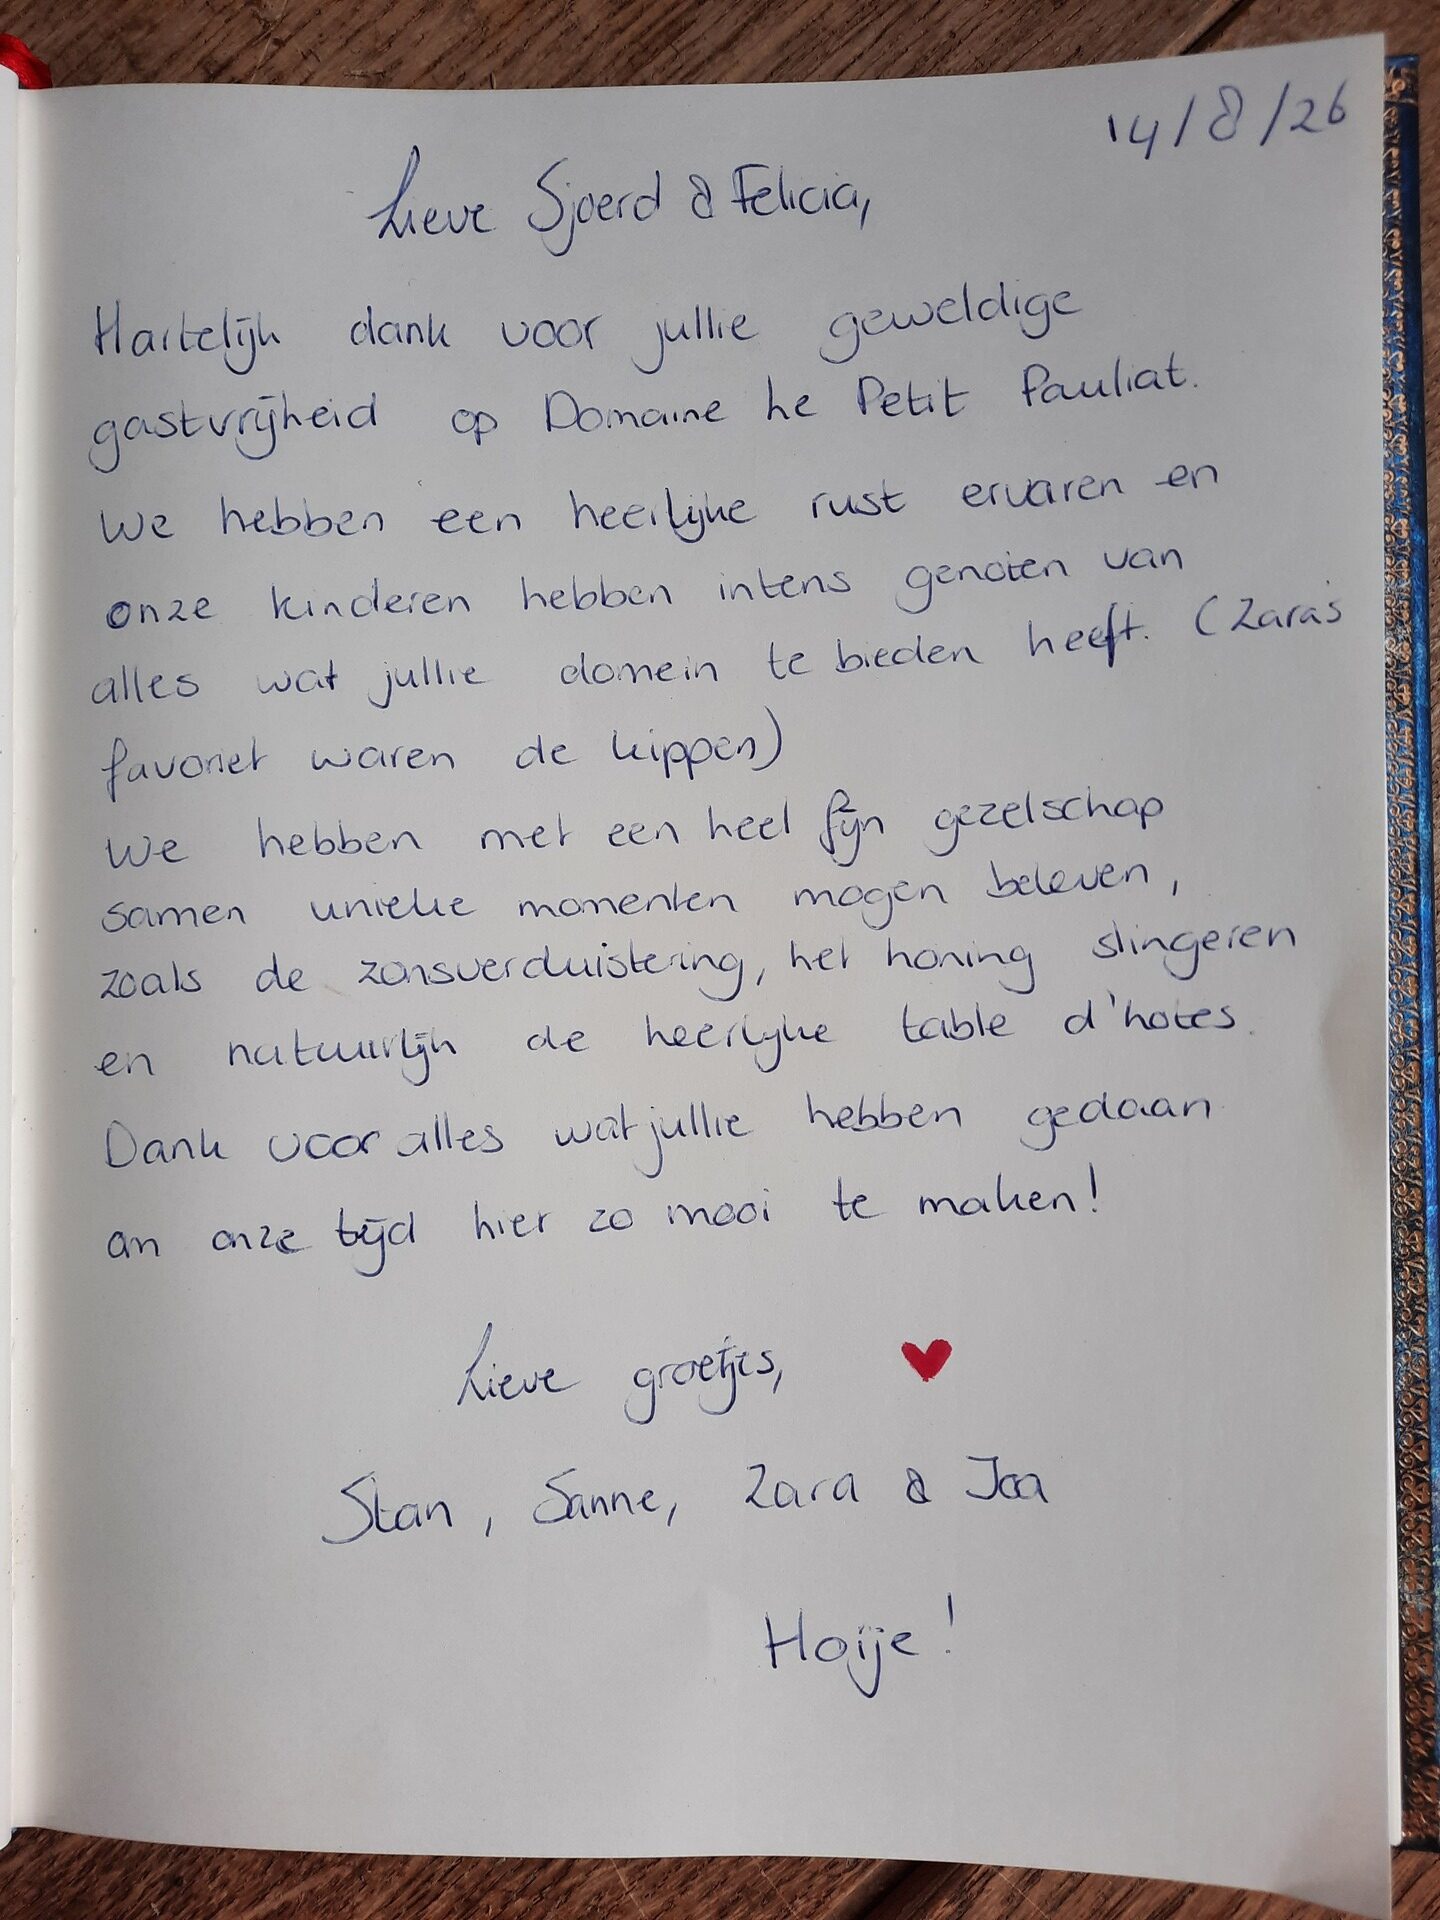 14/8/26
Lieve Sjoerd & Felicia,
Hartelijk dank voor jullie geweldige
gastvrijheid op Domaine Le Petit Pauliat.
We hebben een heerlijke rust ervaren en
onze kinderen hebben intens genoten van
alles wat jullie domein te bieden heeft. (Zara's
favoriet waren de kippen)
We hebben met een heel fijn gezelschap
samen unieke momenten mogen beleven,
zoals de zonsverduistering, het honing slingeren
en natuurlijk de heerlijke table d'hotes.
Dank voor alles wat jullie hebben gedaan
om onze tijd hier zo mooi te maken!
Lieve groetjes, ♥
Stan, Sanne, Zara &
Hoije!